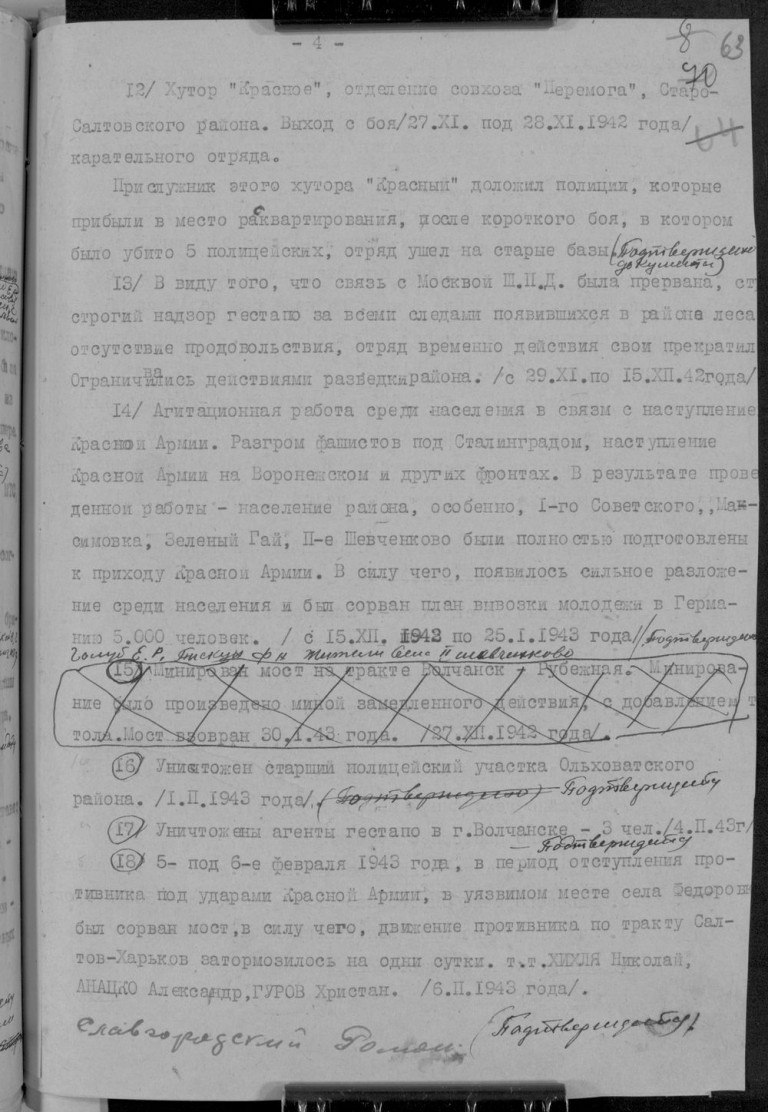 - 4 -
8 63
70
64
12/ Хутор "Красное", отделение совхоза "Перемога", Старо-
Салтовского района. Выход с боя/27.XI. под 28.XI.1942 года/
карательного отряда.
Прислужник этого хутора "Красный" доложил полиции, которые
прибыли в место расквартирования, после короткого боя, в котором
было убито 5 полицейских, отряд ушел на старые базы. (Подтверждено
документы)
13/ В виду того, что связь с Москвой Ш.П.Д. была прервана, ст
строгий надзор гестапо за всеми следами появившихся в районе леса
отсутствие продовольствия, отряд временно действия свои прекратил
Ограничивались действиями разведки района. /с 29.XI.по 15.XII.42года/
14/ Агитационная работа среди населения в связи с наступление
Красной Армии. Разгром фашистов под Сталинградом, наступление
Красной Армии на Воронежском и других фронтах. В результате прове
денной работы - население района, особенно, I-го Советского,,Мак-
симовка, Зеленый Гай, II-е Шевченково были полностью подготовлены
к приходу Красной Армии. В силу чего, появилось сильное разложе-
ние среди населения и был сорван план вывозки молодежи в Герма-
нию 5.000 человек. / с 15.XII. 1942 по 25.I.1943 года/ /Подтвержден
Голуб Е.Р., Пискун Ф Н жители села II шевченково
15/ Минирован мост на тракте Волчанск - Рубежная. Минирова-
ние было произведено миной замедленного действия, с добавлением т
тола.Мост взорван 30.I.43 года. /27.XII.1942 года/.
16/ Уничтожен старший полицейский участка Ольховатского
района. /I.II.1943 года/. (Подтверждено) - Подтверждено
17/ Уничтожены агенты гестапо в г.Волчанске - 3 чел./4.II.43г/
— Подтверждено
18/ 5- под 6-е февраля 1943 года, в период отступления про-
тивника под ударами Красной Армии, в уязвимом месте села Федоровк
был сорван мост,в силу чего, движение противника по тракту Сал-
тов-Харьков затормозилось на одни сутки. т.т.ХИХЛЯ Николай,
АНАЦКО Александр,ГУРОВ Христан. /6.II.1943 года/.
Славгородский Роман. (Подтверждено)